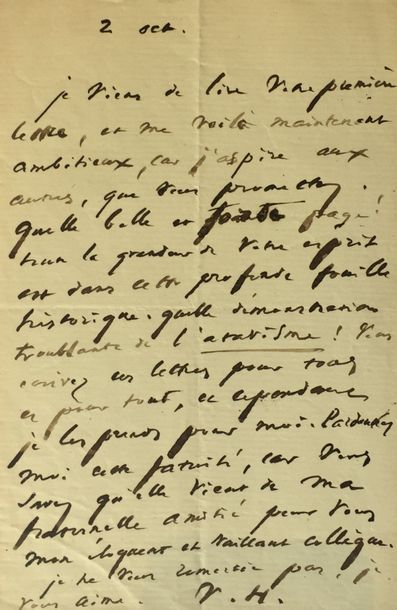 2 oct.
je viens de lire votre première
lettre, et me voilà maintenant
ambitieux, car j'aspire aux
autres, que vous promettez.
quelle belle et forte page !
toute la grandeur de votre esprit
est dans cette profonde fouille
historique. quelle démonstration
troublante de l'atavisme ! Vous
écrivez ces lettres pour tous
et pour tout, et cependant
je les prends pour moi. Pardonnez
moi cette fatuité, car vous
savez qu'elle vient de ma
fraternelle amitié pour vous
mon éloquent et vaillant collègue.
je ne vous remercie pas, je
vous aime. V. H.